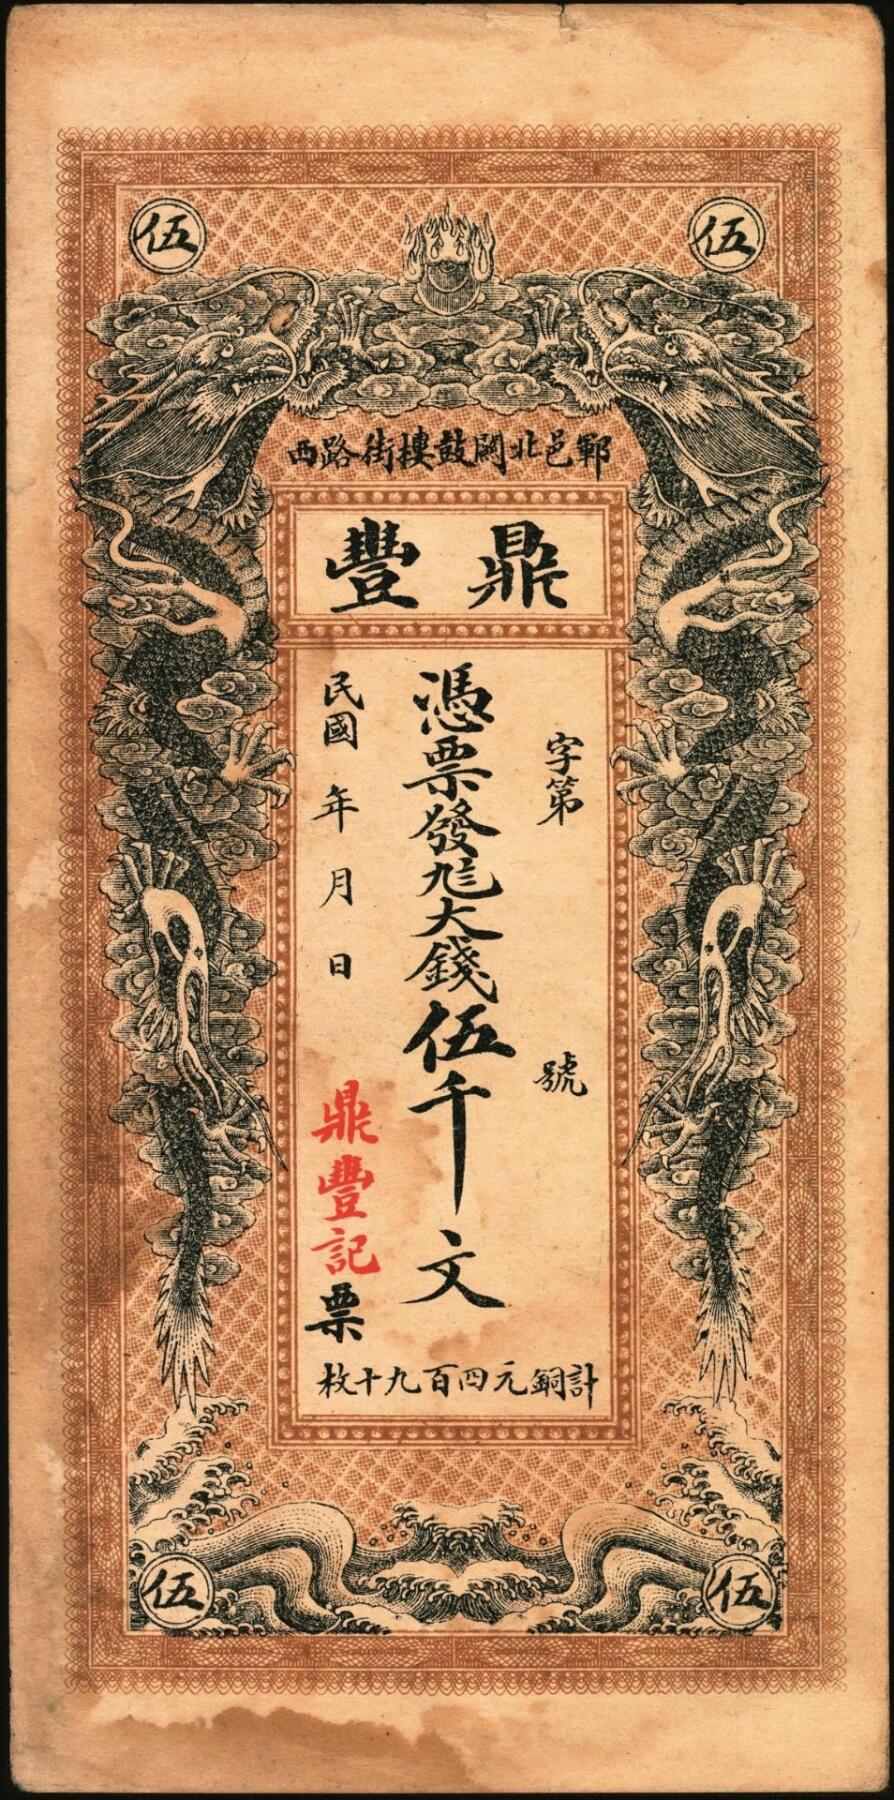 伍
伍
鄆邑北關鼓樓街路西
鼎豐
字第 號
憑票發九〨大錢伍千文
民國 年 月 日
鼎豐記票
計銅元四百九十枚
伍
伍